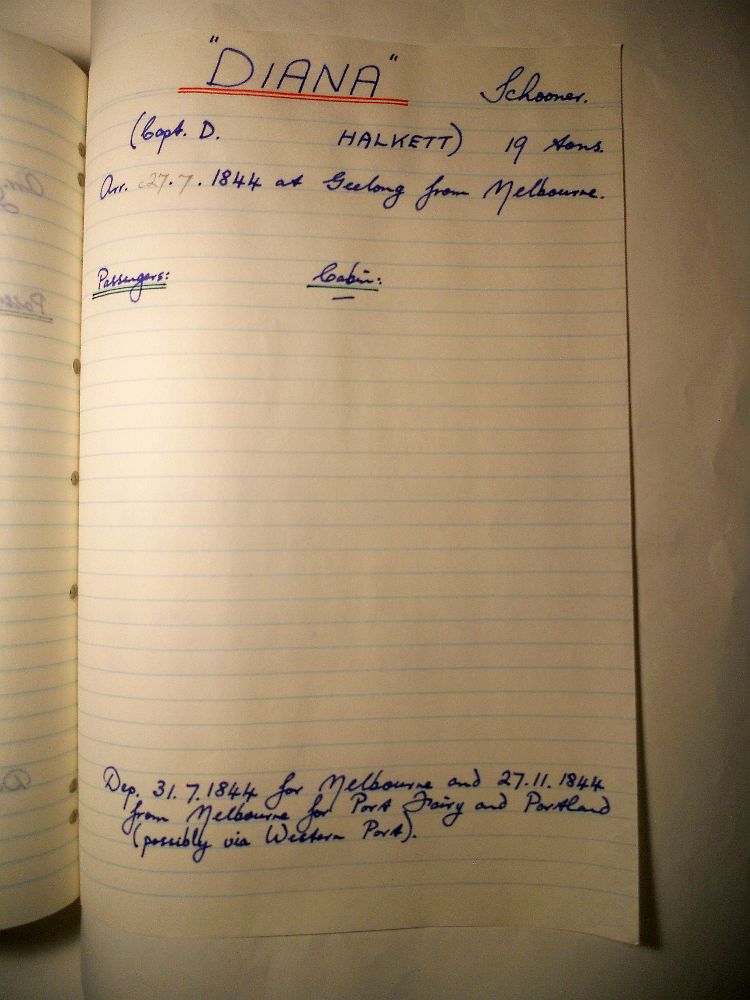 "DIANA" Schooner.
(Capt. D. HALKETT) 19 tons.
Arr. c27.7.1844 at Geelong from Melbourne.
Passengers: Cabin:
Dep. 31.7.1844 for Melbourne and 27.11.1844
from Melbourne for Port Fairy and Portland
(possibly via Western Port).